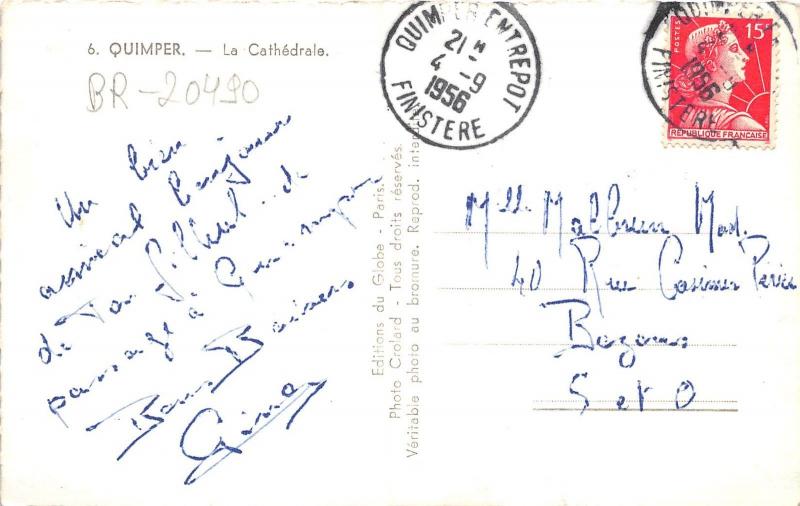 6. QUIMPER. — La Cathédrale.
BR-20490
Un bien
amical bonjour
de Ton filleul de
passage à Quimper
Bons Baisers
QUIMPER ENTREPOT
21 H
4 - 9
1956
FINISTERE
POSTES
15F
REPUBLIQUE FRANÇAISE
QUIMPER
1956
FINISTERE
Editions du Globe - Paris.
Photo Crolard - Tous droits réservés.
Véritable photo au bromure. Reprod. inter
Mlle Malbrun Mad.
40 Rue Casimir Perier
Bezons
S et O